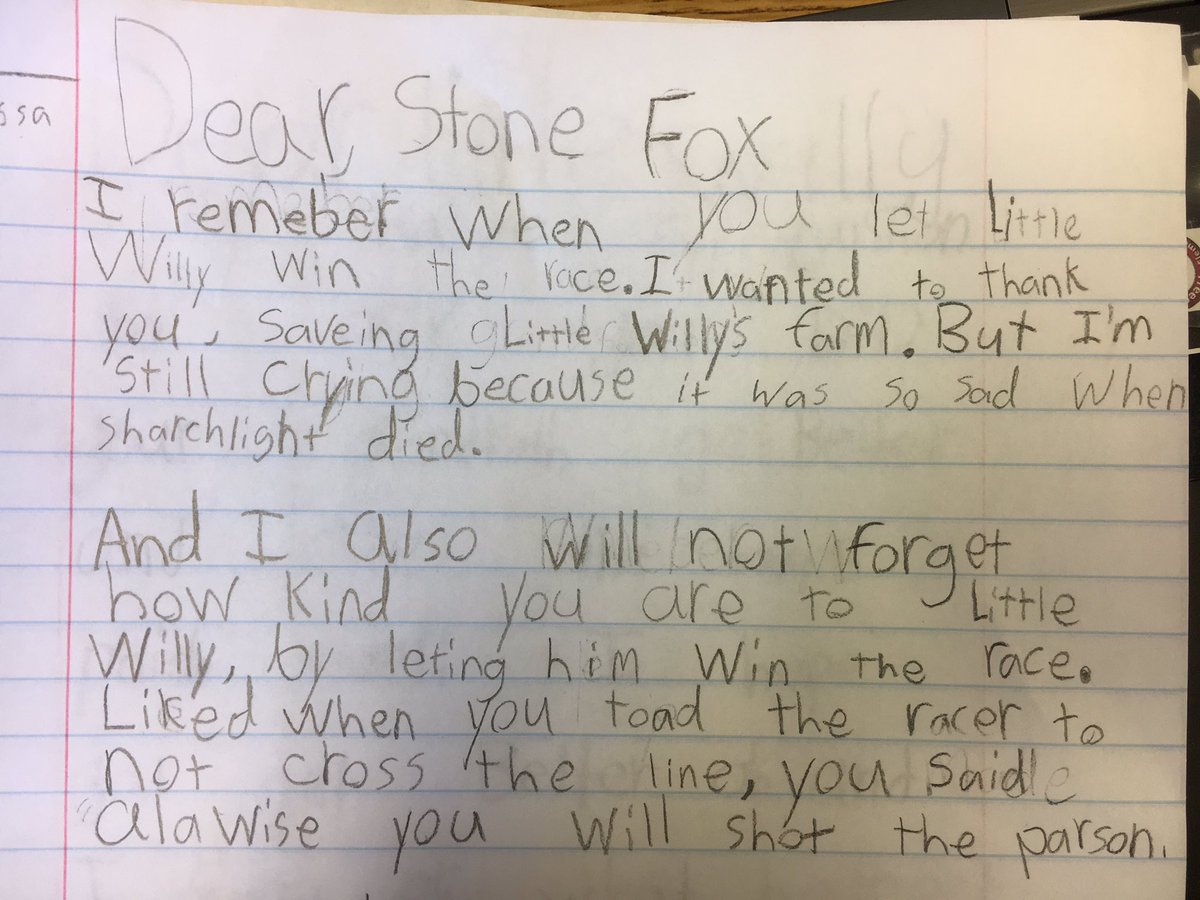 ssa
Dear, Stone Fox
I remeber when you let Little
Willy win the race. I wanted to thank
you, saveing Little Willy's farm. But I'm
still crying because it was so sad when
sharchlight died.
And I also will not forget
how kind you are to Little
Willy, by leting him win the race.
Liked when you toad the racer to
not cross the line, you said
"alawise you will shot the parson.